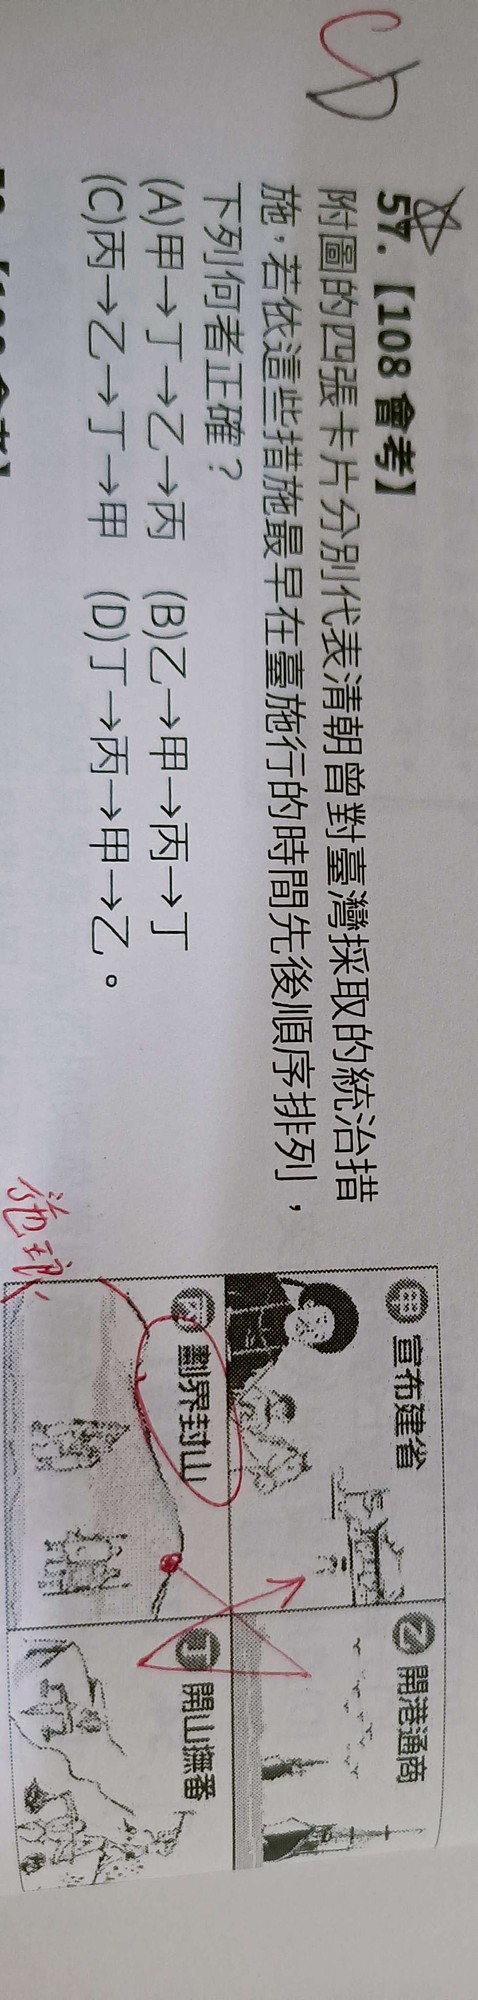 CD
57.【108 會考】
附圖的四張卡片分別代表清朝曾對臺灣採取的統治措
施，若依這些措施最早在臺施行的時間先後順序排列，
下列何者正確？
(A)甲→丁→乙→丙 (B)乙→甲→丙→丁
(C)丙→乙→丁→甲 (D)丁→丙→甲→乙。
甲 宣布建省
乙 開港通商
丙 劃界封山
丁 開山撫番